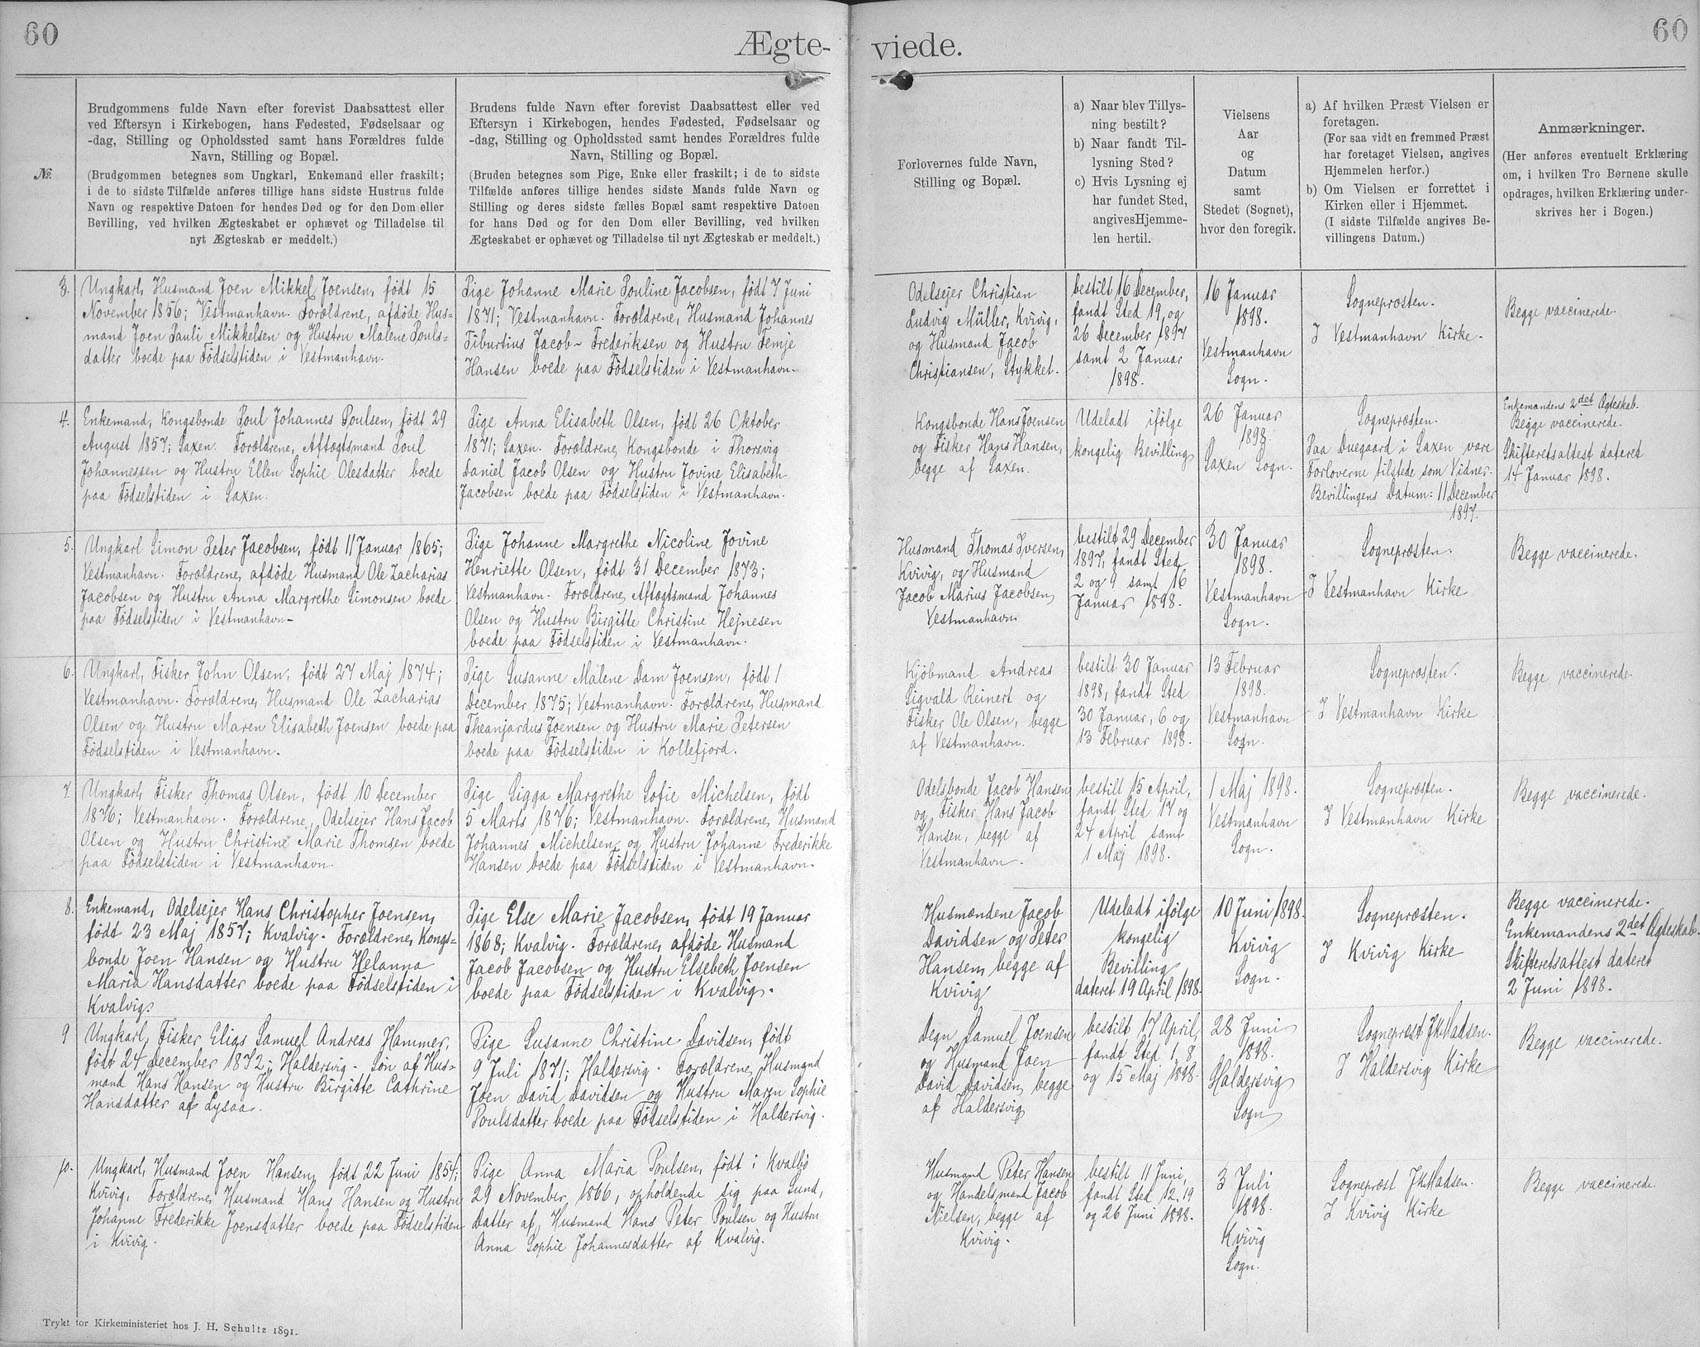 60
Ægte-
viede.
60
№
Brudgommens fulde Navn efter forevist Daabsattest eller
ved Eftersyn i Kirkebogen, hans Fødested, Fødselsaar og
-dag, Stilling og Opholdssted samt hans Forældres fulde
Navn, Stilling og Bopæl.
(Brudgommen betegnes som Ungkarl, Enkemand eller fraskilt;
i de to sidste Tilfælde anføres tillige hans sidste Hustrus fulde
Navn og respektive Datoen for hendes Død og for den Dom eller
Bevilling, ved hvilken Ægteskabet er ophævet og Tilladelse til
nyt Ægteskab er meddelt.)
Brudens fulde Navn efter forevist Daabsattest eller ved
Eftersyn i Kirkebogen, hendes Fødested, Fødselsaar og
-dag, Stilling og Opholdssted samt hendes Forældres fulde
Navn, Stilling og Bopæl.
(Bruden betegnes som Pige, Enke eller fraskilt; i de to sidste
Tilfælde anføres tillige hendes sidste Mands fulde Navn og
Stilling og deres sidste fælles Bopæl samt respektive Datoen
for hans Død og for den Dom eller Bevilling, ved hvilken
Ægteskabet er ophævet og Tilladelse til nyt Ægteskab er meddelt.)
Forlovernes fulde Navn,
Stilling og Bopæl.
a) Naar blev Tillys-
ning bestilt?
b) Naar fandt Til-
lysning Sted?
c) Hvis Lysning ej
har fundet Sted,
angives Hjemme-
len hertil.
Vielsens
Aar
og
Datum
samt
Stedet (Sognet),
hvor den foregik.
a) Af hvilken Præst Vielsen er
foretagen.
(For saa vidt en fremmed Præst
har foretaget Vielsen, angives
Hjemmelen herfor.)
b) Om Vielsen er forrettet i
Kirken eller i Hjemmet.
(I sidste Tilfælde angives Be-
villingens Datum.)
Anmærkninger.
(Her anføres eventuelt Erklæring
om, i hvilken Tro Børnene skulle
opdrages, hvilken Erklæring under-
skrives her i Bogen.)
3.
Ungkarl, Husmand Joen Mikkel Joensen, født 15
November 1856; Vestmanhavn. Forældrene, afdöde Hus=
mand Joen Pauli Mikkelsen og Hustru Malene Pouls=
datter boede paa Födselstiden i Vestmanhavn.
Pige Johanne Marie Pouline Jacobsen, født 7 Juni
1871; Vestmanhavn. Forældrene, Husmand Johannes
Tiburtius Jacob- Frederiksen og Hustru Femje
Hansen boede paa Födselstiden i Vestmanhavn.
Odelsejer Christian
Ludvig Müller, Kvivig,
og Husmand Jacob
Christiansen, Stykket.
bestilt 16 December,
fandt Sted 19, og
26 December 1897
samt 2 Januar
1898.
16 Januar
1898.
Vestmanhavn
Sogn.
Sognepræsten.
I Vestmanhavn Kirke.
Begge vaccinerede.
4.
Enkemand, Kongsbonde Poul Johannes Poulsen, født 29
August 1857; Saxen. Forældrene, Aftægtsmand Poul
Johannessen og Hustru Ellen Sophie Olesdatter boede
paa Födselstiden i Saxen.
Pige Anna Elisabeth Olsen, født 26 Oktober
1871; Saxen. Forældrene, Kongsbonde i Thorsvig
Daniel Jacob Olsen og Hustru Jovine Elisabeth
Jacobsen boede paa Födselstiden i Vestmanhavn.
Kongsbonde Hans Joensen
og Fisker Hans Hansen,
begge af Saxen.
Udeladt ifølge
kongelig Bevilling
26 Januar
1898.
Saxen Sogn.
Sognepræsten.
Paa Duegaard i Saxen vare
Forloverne tilstede som Vidner.
Bevillingens Datum: 11 December
1897.
Enkemandens 2det Ægteskab.
Begge vaccinerede.
Skifteretsattest dateret
14 Januar 1898.
5.
Ungkarl Simon Peter Jacobsen, født 11 Januar 1865;
Vestmanhavn. Forældrene, afdöde Husmand Ole Zacharias
Jacobsen og Hustru Anna Margrethe Simonsen boede
paa Födselstiden i Vestmanhavn-
Pige Johanne Margrethe Nicoline Jovine
Henriette Olsen, født 31 December 1873;
Vestmanhavn. Forældrene, Aftægtsmand Johannes
Olsen og Hustru Birgitte Christine Hejnesen
boede paa Födselstiden i Vestmanhavn.
Husmand Thomas Iversen,
Kvivig, og Husmand
Jacob Marius Jacobsen,
Vestmanhavn
bestilt 29 December
1897, fandt Sted
2 og 9 samt 16
Januar 1898.
30 Januar
1898.
Vestmanhavn
Sogn.
Sognepræsten.
I Vestmanhavn Kirke
Begge vaccinerede.
6.
Ungkarl, Fisker John Olsen, født 27 Maj 1874;
Vestmanhavn. Forældrene, Husmand Ole Zacharias
Olsen og Hustru Maren Elisabeth Joensen boede paa
Födselstiden i Vestmanhavn.
Pige Susanne Malene Dam Joensen, født 1
December 1875; Vestmanhavn. Forældrene, Husmand
Theanjardus Joensen og Hustru Marie Petersen
boede paa Födselstiden i Kollefjord.
Kjöbmand Andreas
Sigvald Reinert og
Fisker Ole Olsen, begge
af Vestmanhavn.
bestilt 30 Januar
1898, fandt Sted
30 Januar, 6 og
13 Februar 1898.
13 Februar
1898.
Vestmanhavn
Sogn.
Sognepræsten.
I Vestmanhavn Kirke
Begge vaccinerede.
7.
Ungkarl, Fisker Thomas Olsen, født 10 December
1876; Vestmanhavn. Forældrene, Odelsejer Hans Jacob
Olsen og Hustru Christine Marie Thomsen boede
paa Födselstiden i Vestmanhavn.
Pige Sigga Margrethe Sofie Michelsen, født
5 Marts 1876; Vestmanhavn. Forældrene, Husmand
Johannes Michelsen og Hustru Johanne Frederikke
Hansen boede paa Födselstiden i Vestmanhavn.
Odelsbonde Jacob Hansen
og Fisker Hans Jacob
Hansen, begge af
Vestmanhavn.
bestilt 15 April,
fandt Sted 17 og
24 April samt
1 Maj 1898.
1 Maj 1898.
Vestmanhavn
Sogn.
Sognepræsten.
I Vestmanhavn Kirke
Begge vaccinerede.
8.
Enkemand, Odelsejer Hans Christopher Joensen,
født 23 Maj 1857; Kvalvig. Forældrene, Kongs=
bonde Joen Hansen og Hustru Helanna
Maria Hansdatter boede paa Födselstiden i
Kvalvig.
Pige Else Marie Jacobsen, født 19 Januar
1868; Kvalvig. Forældrene, afdöde Husmand
Jacob Jacobsen og Hustru Elsebeth Joensen
boede paa Födselstiden i Kvalvig.
Husmændene Jacob
Davidsen og Peter
Hansen, begge af
Kvivig
Udeladt ifølge
kongelig
Bevilling
dateret 19 April 1898.
10 Juni 1898.
Kvivig
Sogn.
Sognepræsten.
I Kvivig Kirke
Begge vaccinerede.
Enkemandens 2det Ægteskab.
Skifteretsattest dateret
2 Juni 1898.
9
Ungkarl, Fisker Elias Samuel Andreas Hammer,
født 24 December 1872; Haldersvig. Søn af Hus=
mand Hans Hansen og Hustru Birgitte Cathrine
Hansdatter af Lysaa.
Pige Susanne Christine Davidsen, født
9 Juli 1871; Haldersvig. Forældrene, Husmand
Joen David Davidsen og Hustru Maren Sophie
Poulsdatter boede paa Födselstiden i Haldersvig.
Degn Samuel Joensen
og Husmand Joen
David Davidsen, begge
af Haldersvig
bestilt 17 April,
fandt Sted 1, 8
og 15 Maj 1898.
28 Juni
1898.
Haldersvig
Sogn
Sognepræst JKMadsen.
I Haldersvig Kirke
Begge vaccinerede.
10.
Ungkarl, Husmand Joen Hansen, født 22 Juni 1854;
Kvivig. Forældrene, Husmand Hans Hansen og Hustru
Johanne Frederikke Joensdatter boede paa Födselstiden
i Kvivig.
Pige Anna Maria Poulsen, født i Kvalvig
29 November 1866, opholdende sig paa Sund,
Datter af Husmand Hans Peter Poulsen og Hustru
Anna Sophie Johannesdatter af Kvalvig.
Husmand Peter Hansen
og Handelsmand Jacob
Nielsen, begge af
Kvivig.
bestilt 11 Juni,
fandt Sted 12, 19
og 26 Juni 1898.
3 Juli
1898.
Kvivig
Sogn.
Sognepræst JKMadsen.
I Kvivig Kirke
Begge vaccinerede.
Trykt for Kirkeministeriet hos J. H. Schultz 1891.